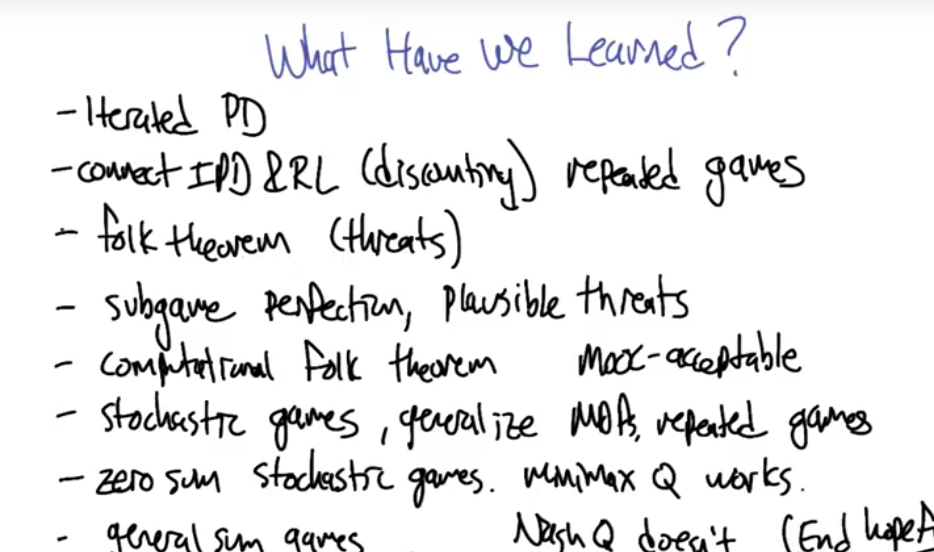 What Have We Learned?
- Iterated PD
- connect IPD & RL (discounting) repeated games
- folk theorem (threats)
- subgame perfection, plausible threats
- computational folk theorem Mooc-acceptable
- stochastic games, generalize MDPs, repeated games
- zero sum stochastic games. minimax Q works.
- general sum games Nash Q doesn't (End